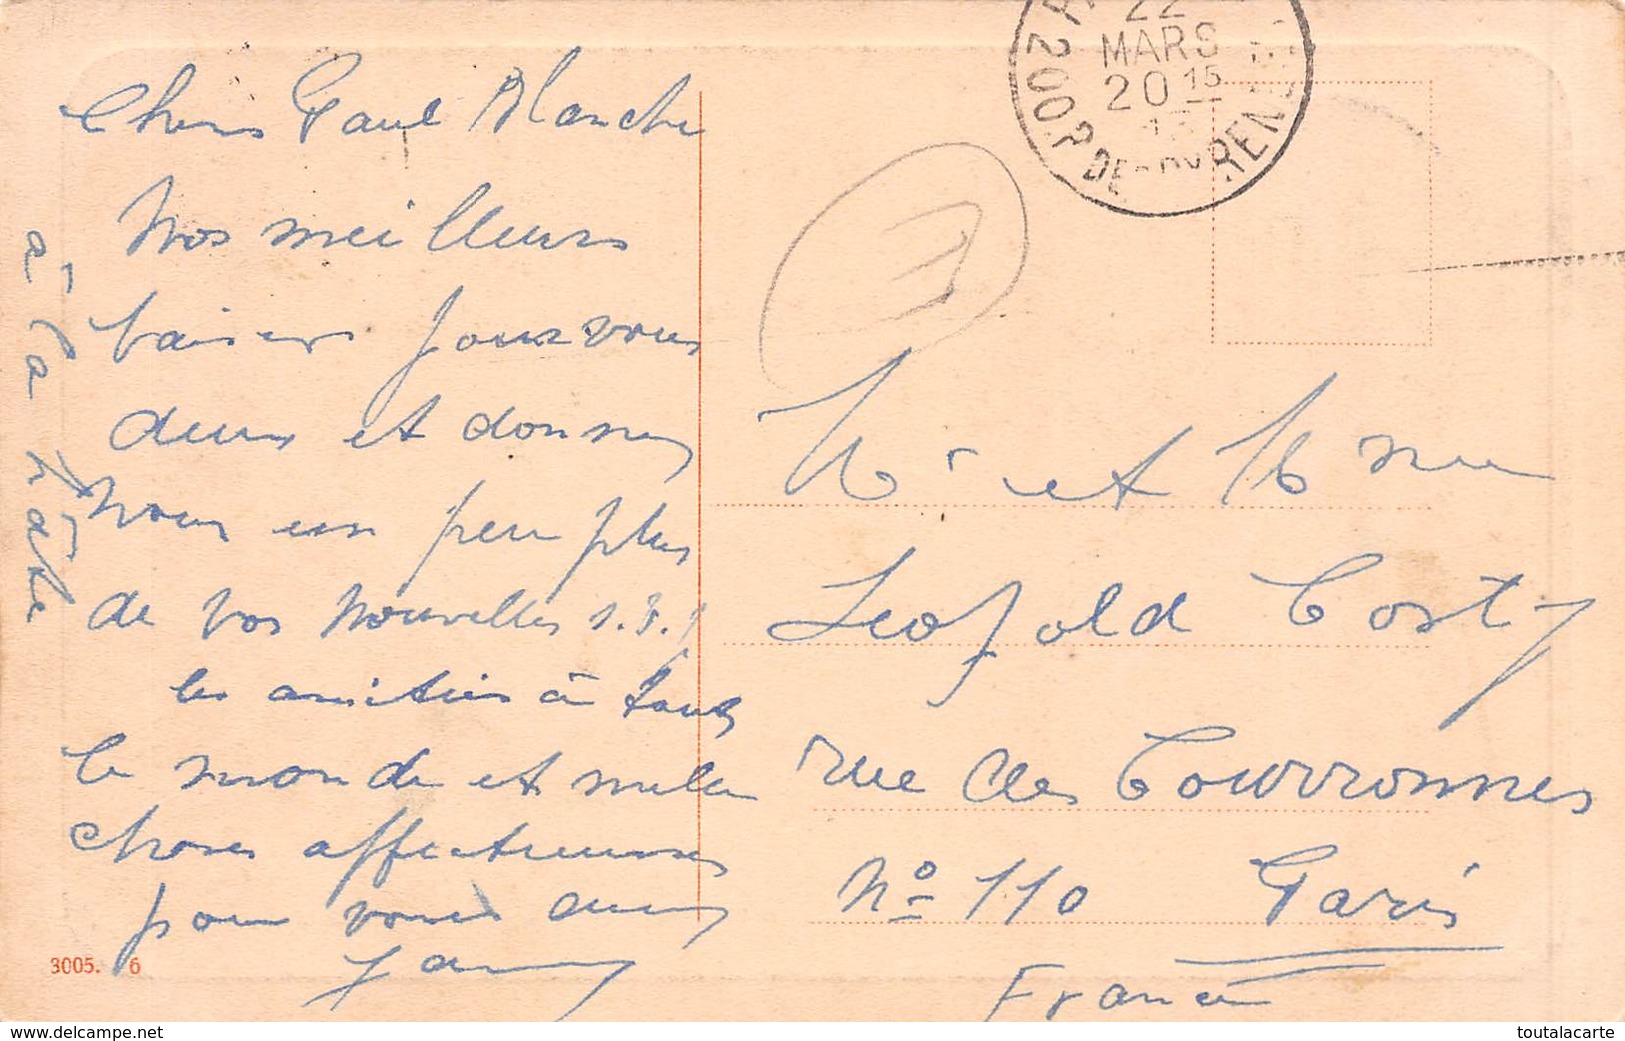 Chers Paul Blanche
Nos meilleurs
baisers pour vous
deux et donnez
nous un peu plus
de vos nouvelles s.v.p
les amitiés à tout
le monde et mille
choses affectueuses
pour vous deux
à la hâte
3005. 6
22
MARS
20 15
200 P DES PYREN
Mr et Mme
Leopold Costy
rue des Couronnes
No 110 Paris
France
www.delcampe.net
toutalacarte